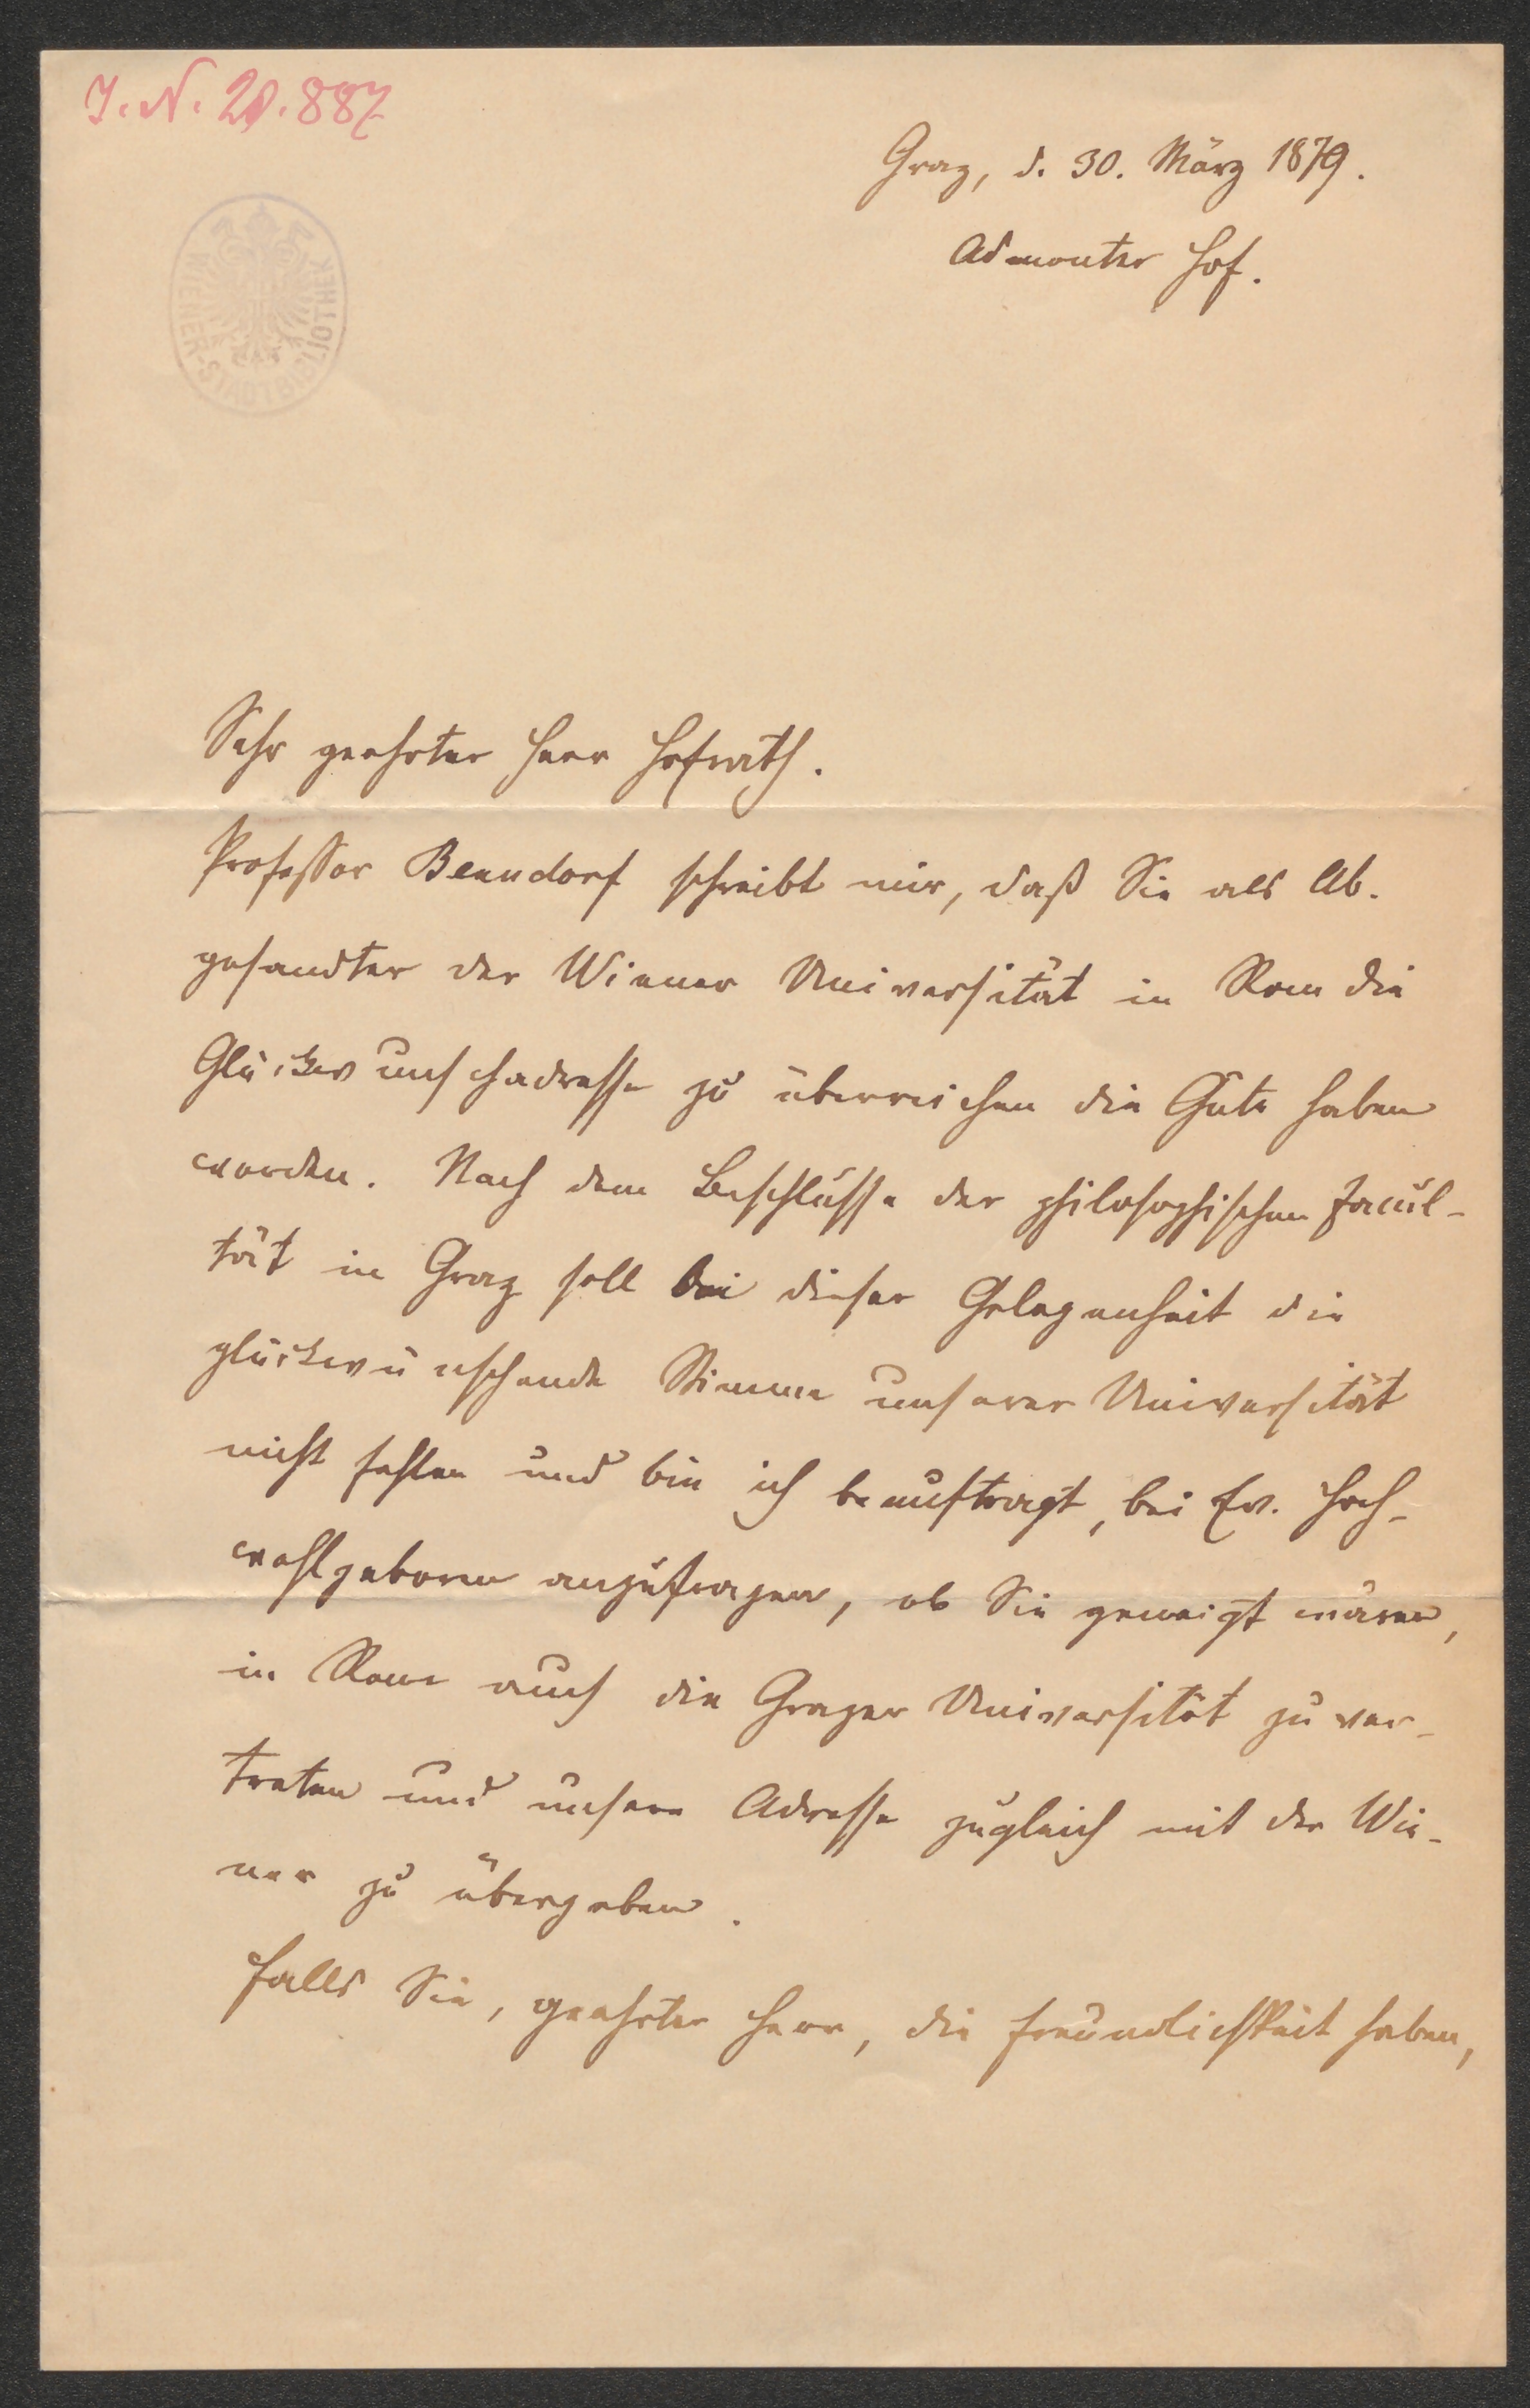 J. N. 20.887
Graz, d. 30. März 1879.
Admonter Hof.
WIENER-STADTBIBLIOTHEK
Sehr geehrter Herr Hofrath.
Professor Benndorf schreibt mir, daß Sie als Ab-
gesandter der Wiener Universität in Rom die
Glückwunschadresse zu überreichen die Güte haben
werden. Nach dem Beschlusse der philosophischen Facul-
tät in Graz soll bei dieser Gelegenheit die
glückwünschende Stimme unserer Universität
nicht fehlen und bin ich beauftragt, bei Ew. Hoch-
wohlgeboren anzufragen, ob Sie geneigt wären,
in Rom auch die Grazer Universität zu ver-
treten und unsere Adresse zugleich mit der Wie-
ner zu übergeben.
Falls Sie, geehrter Herr, die Freundlichkeit haben,